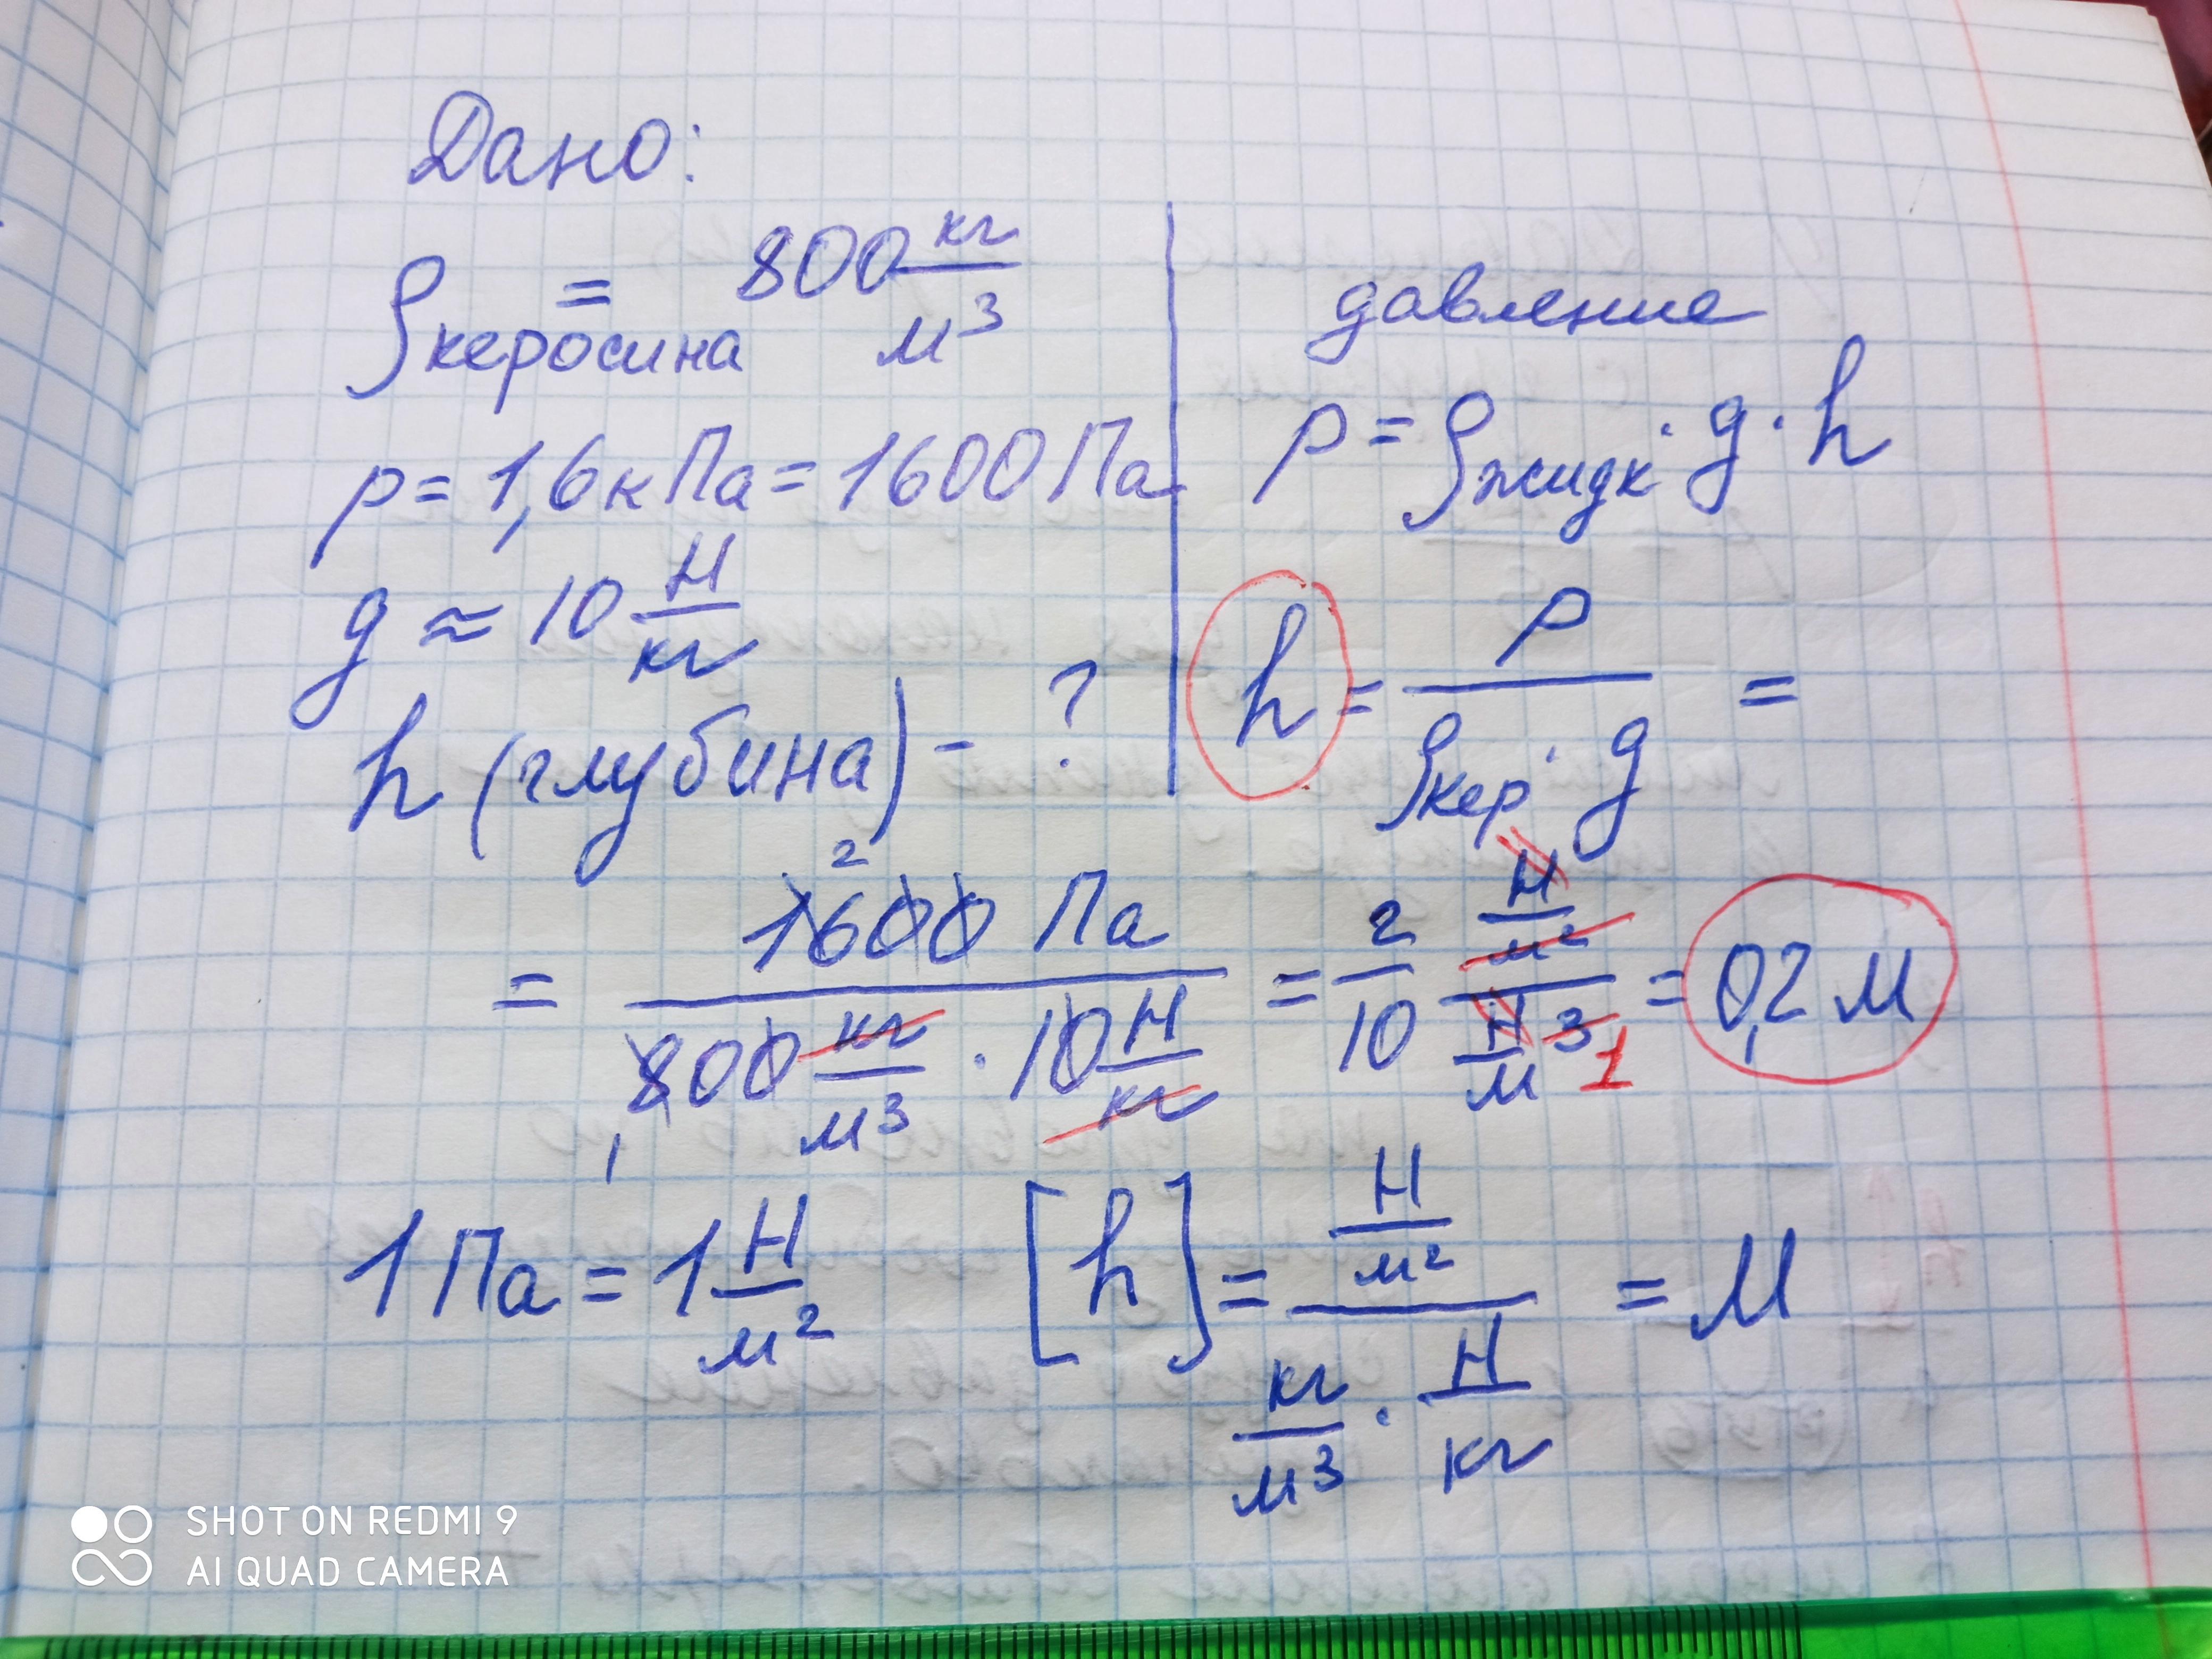 Дано:
ρ керосина = 800 кг/м³
p = 1,6 кПа = 1600 Па
g ≈ 10 Н/кг
h (глубина) - ?
давление
p = ρ жидк · g · h
h = p / (ρ кер · g) =
= 1600 Па / (800 кг/м³ · 10 Н/кг) = 2/10 (Н/м²) / (Н/м³) = 0,2 м
2
1
1
1 Па = 1 Н/м²
[h] = (Н/м²) / (кг/м³ · Н/кг) = м
SHOT ON REDMI 9
AI QUAD CAMERA